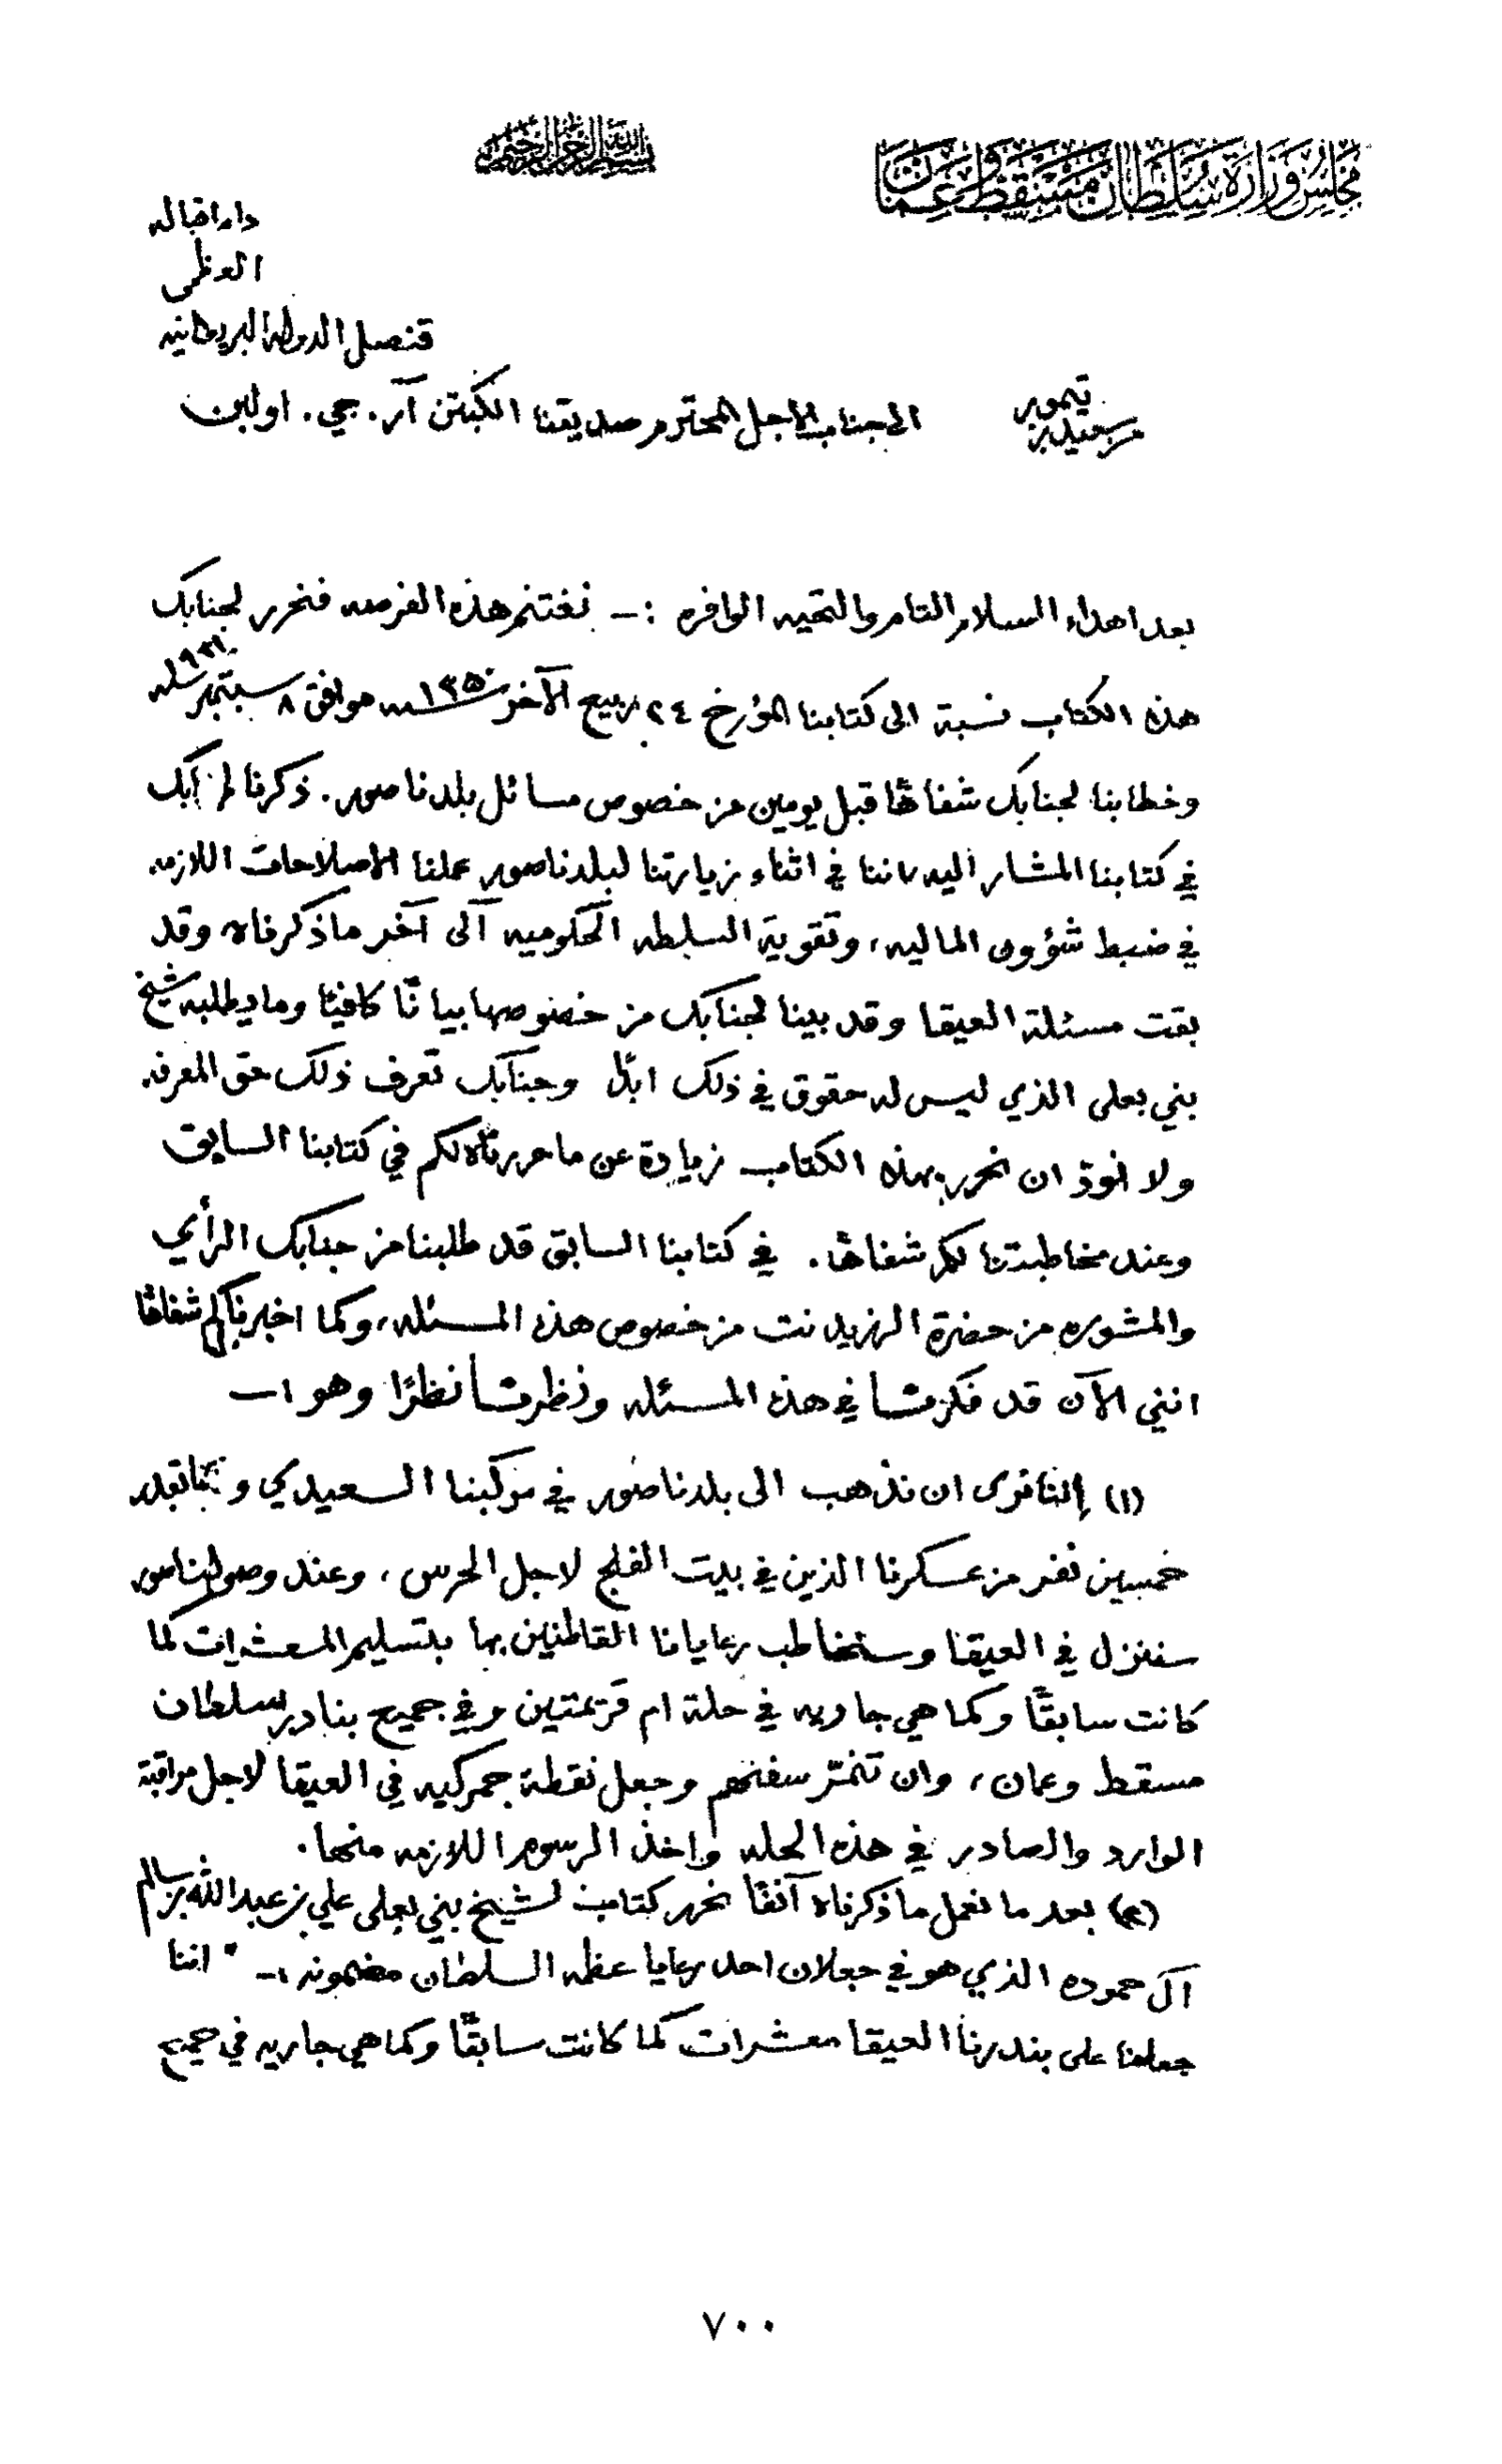 بسم الله الرحمن الرحيم
مجلس وزارة سلطان مسقط وعمان
دام اقباله
العظمى
قنصل الدولة البريطانيه
من سعيد بن تيمور
الى جناب الاجل المحترم صديقنا الكبتن آر. جي. اولبن
بعد اهداء السلام التام والتحيه الوافره :- نغتنم هذه الفرصه فنحرر لجنابك
هذه الكتاب نسبة الى كتابنا المؤرخ ٢٤ ربيع الآخر سنه ١٣٥٠ موافق ٨ سبتمبر سنه ١٩٣١
وخطابنا لجنابك شفاهًا قبل يومين من خصوص مسائل بلدنا صور. ذكرنا لجنابك
في كتابنا المشار اليه باننا في اثناء زيارتنا لبلدنا صور عملنا الاصلاحات اللازمه
في ضبط شؤون الماليه، وتقوية السلطه الحكوميه آلى آخر ماذكرناه وقد
بقت مسئلة العيقا وقد بينا لجنابك من خصوصها بيانًا كافيًا وما يطلبه شيخ
بني بعلى الذي ليس له حقوق في ذلك ابدًا وجنابك تعرف ذلك حق المعرفه
ولا نود ان نحرر بهذه الكتاب زيادة عن ما حررناه لكم في كتابنا السابق
وعند مخاطبتنا لكم شفاهًا. في كتابنا السابق قد طلبنا من جنابك الرأي
والمشوره من حضرة الرزيدنت من خصوص هذه المسئله، وكما اخبرناكم شفاهًا
انني الآن قد فكرت في هذه المسئله ونظرت نظرًا وهو :-
(١) إننا نرى ان نذهب الى بلدنا صور في مركبنا السعيدي و بقدر
خمسين نفر من عسكرنا الذين في بيت الفلج لاجل الحرس، وعند وصولنا صور
سننزل في العيقا وسنخاطب رعايانا القاطنين بها بتسليم المعشرات كما
كانت سابقًا وكما هي جاريه في حلة ام قريمتين وفي جميع بنادر سلطان
مسقط وعمان، وان تنمّر سفنهم وجعل نقطة جمركيه في العيقا لاجل مراقبة
الوارد والصادر في هذه الحله واخذ الرسوم اللازمه منها.
(٢) بعد ما نعمل ماذكرناه آنفًا نحرر كتاب لشيخ بني بعلى علي بن عبدالله بن سالم
آل حموده الذي هو في جعلان احد رعايا عظمه السلطان مضمونه :- " اننا
جعلنا على بندرنا العيقا معشرات كما كانت سابقًا وكما هي جاريه في جميع
٧٠٠